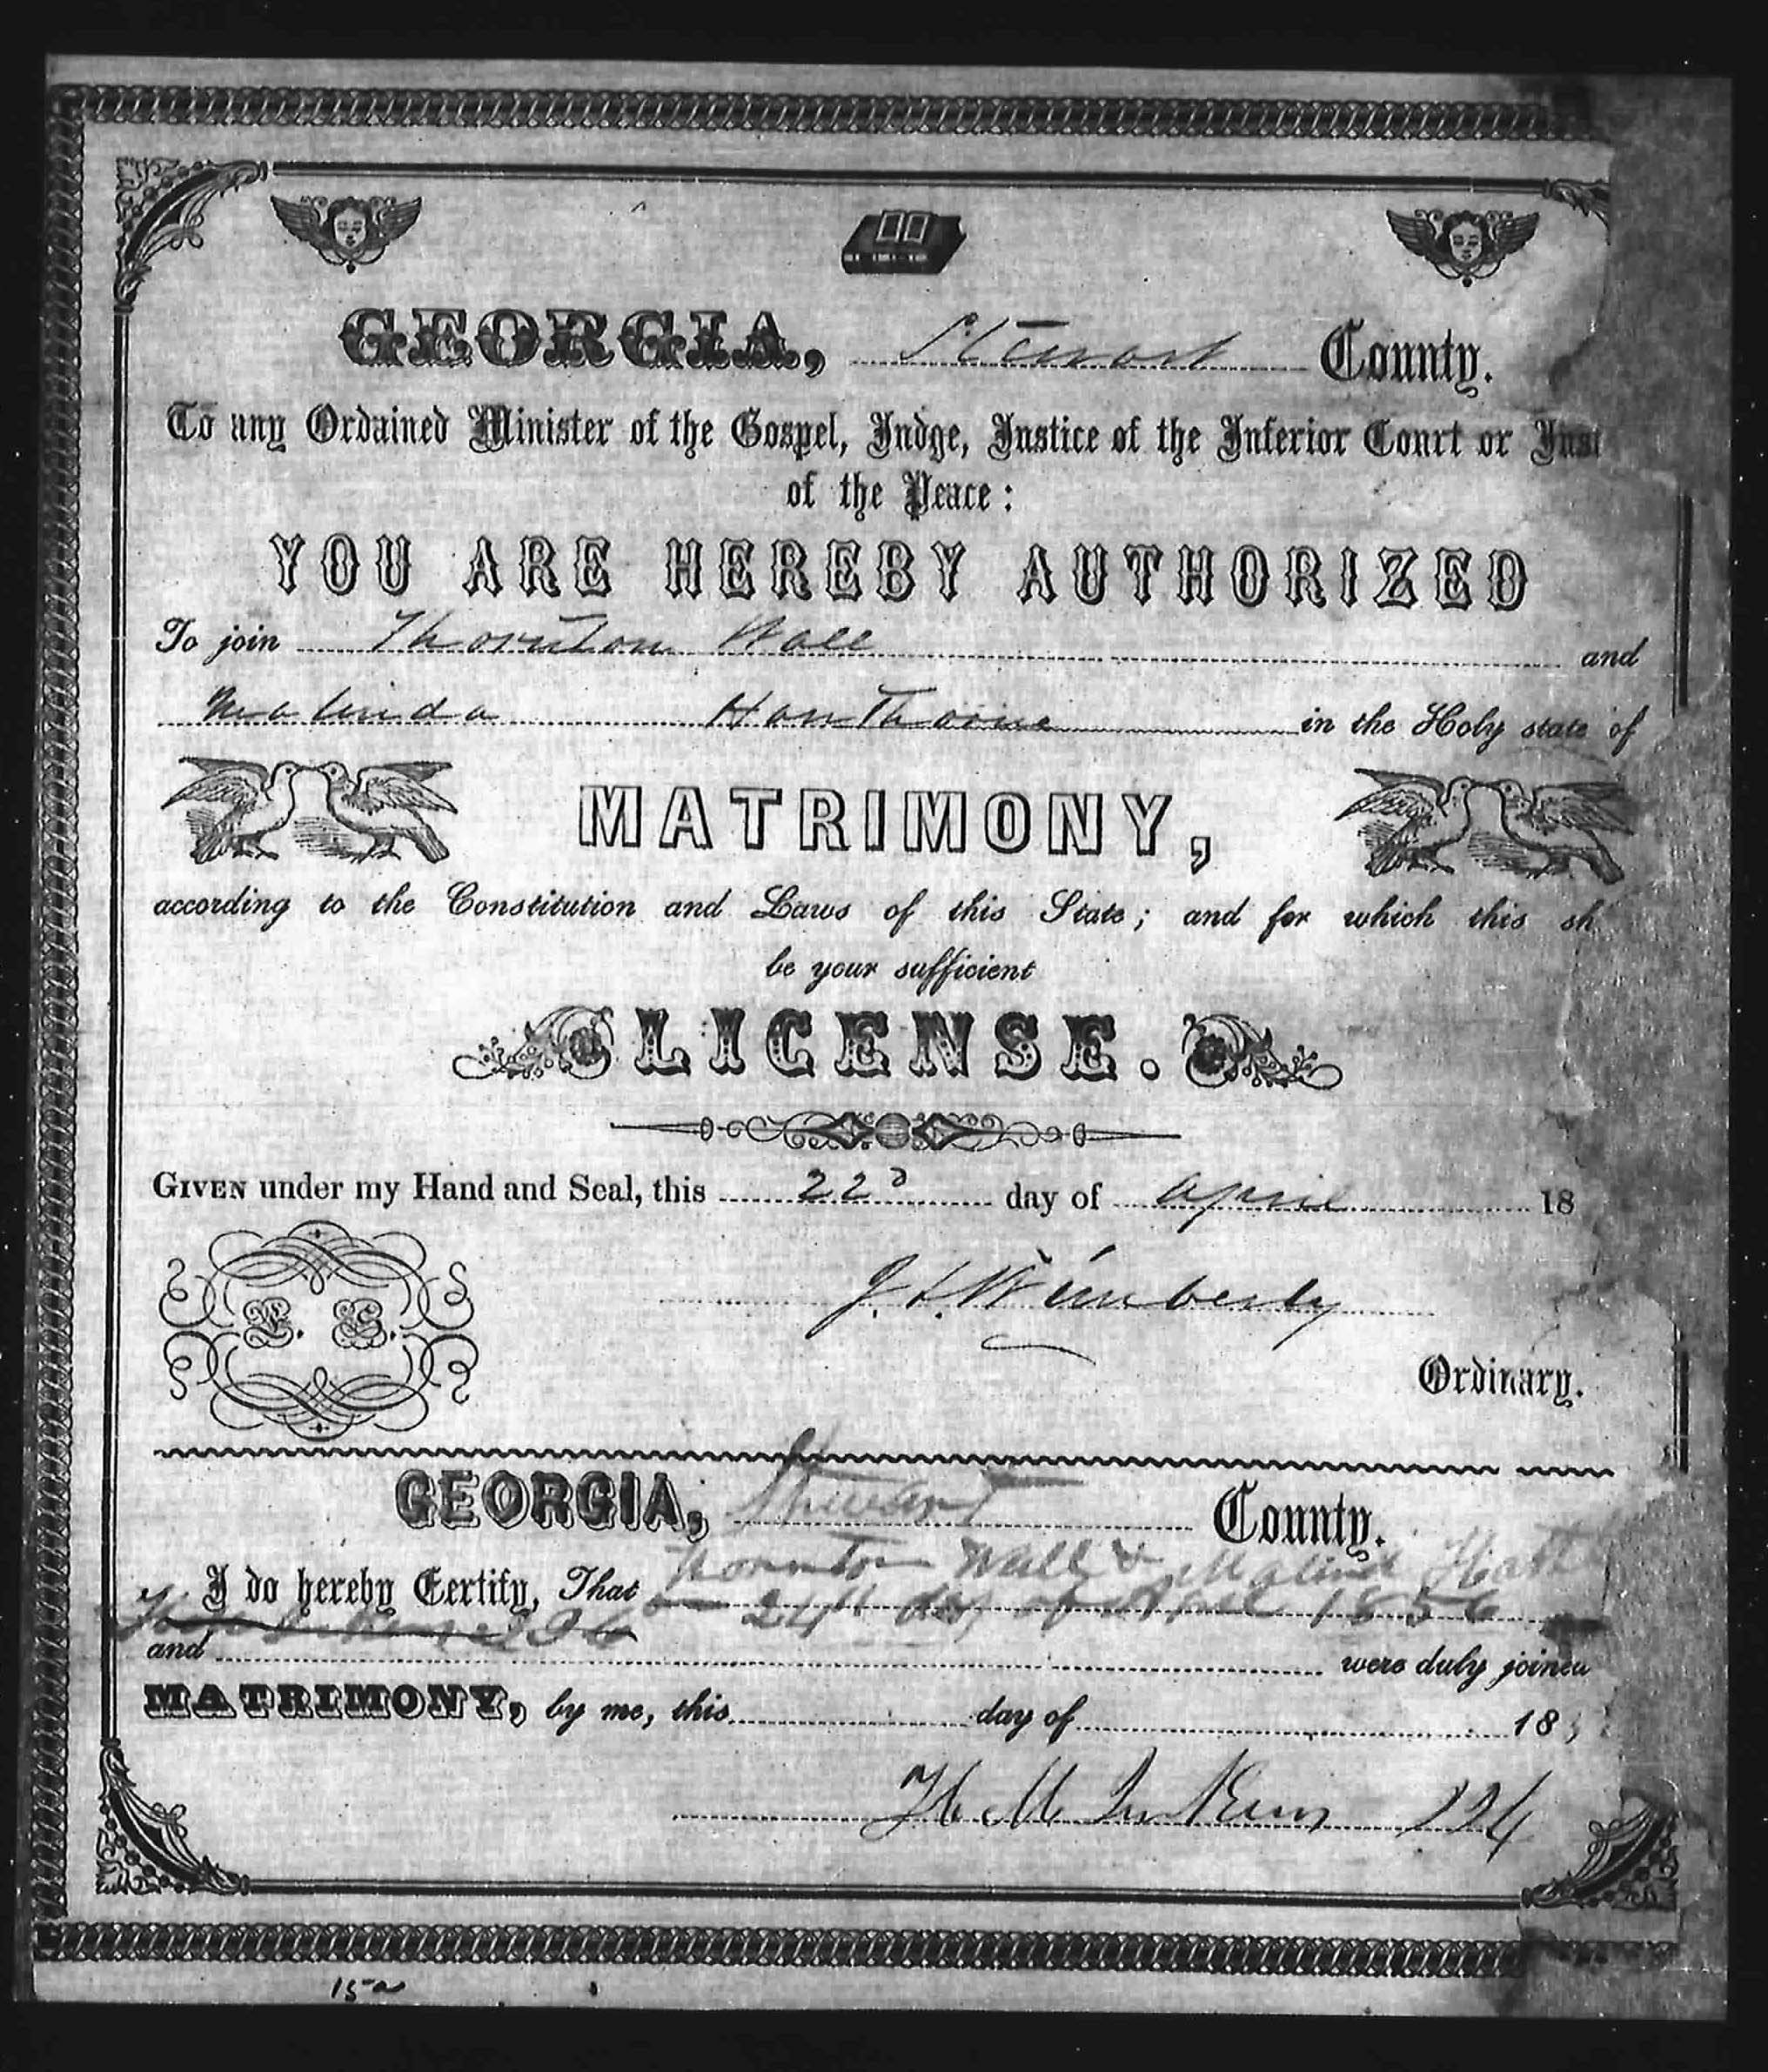 GEORGIA, Stewart County.
To any Ordained Minister of the Gospel, Judge, Justice of the Inferior Court or Just
of the Peace:
YOU ARE HEREBY AUTHORIZED
To join Thornton Wall and
Malinda Hawthorne in the Holy state of
MATRIMONY,
according to the Constitution and Laws of this State; and for which this sh
be your sufficient
LICENSE.
GIVEN under my Hand and Seal, this 22d day of April 18
L. S.
J. L. Wimberly
Ordinary.
GEORGIA, Stewart County.
Thornton Wall & Malinda
I do hereby Certify, That
on 24th day of April 1856
and were duly joined
MATRIMONY, by me, this day of 18
H M